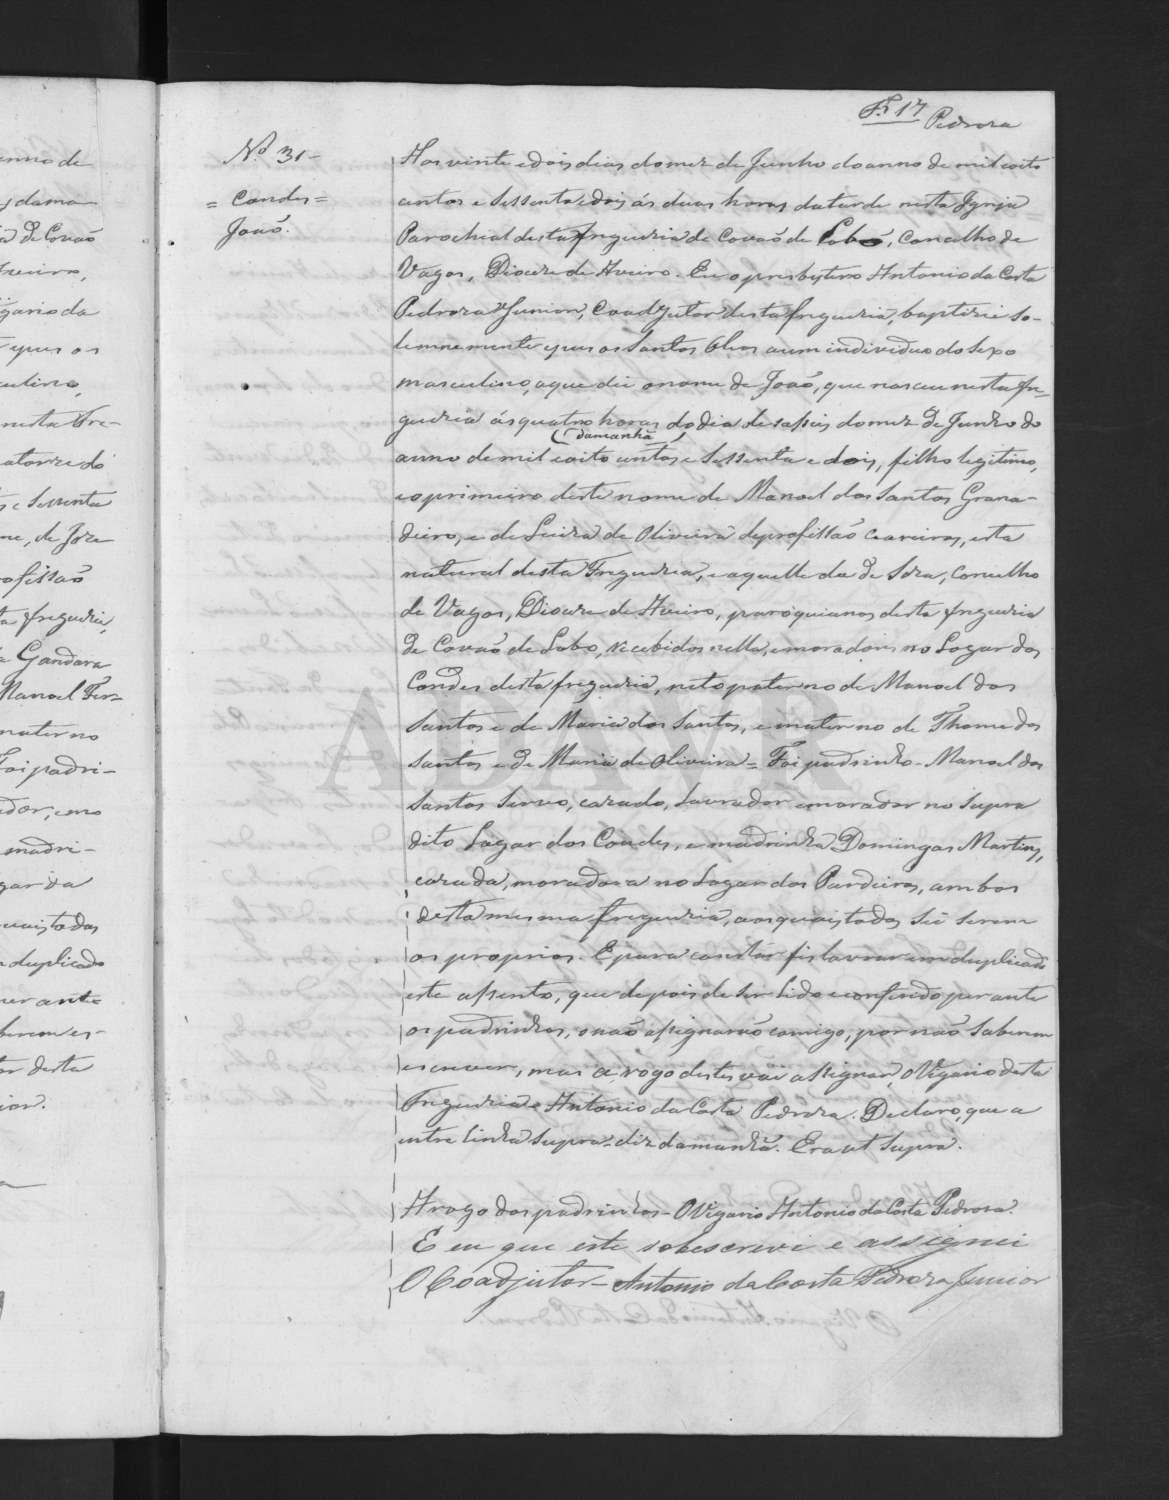 Fl 17 Pedroza
Nº 31-
= Condes =
João.
Aos vinte e dois dias do mez de Junho do anno de mil oito
centos e Sessenta e dois ás duas horas da tarde nesta Igreja
Parochial desta freguezia de Covão de Lobo, Concelho de
Vagos, Diocese de Aveiro. Eu o presbytero Antonio da Costa
Pedroza Junior, Coadjutor desta freguezia, baptizei So-
lemnemente e puz os Santos Oleos a um individuo do Sexo
masculino, a que dei o nome de João, que nasceu nesta fre-
guezia ás quatro horas do dia deseseis do mez de Junho do
(damanhã)
anno de mil e oito centos e Sessenta e dois, filho legitimo,
e o primeiro deste nome de Manoel dos Santos Grana-
deiro, e de Luiza de Oliveira de profissão seareiros, esta
natural desta Freguezia, e aquelle da de Soza, Concelho
de Vagos, Diocese de Aveiro, paroquianos desta freguezia
de Covão de Lobo, recebidos nella, e moradores no Logar dos
Condes desta freguezia, neto paterno de Manoel dos
Santos e de Maria dos Santos, e materno de Thome dos
Santos e de Maria de Oliveira = Foi padrinho - Manoel dos
Santos Servo, cazado, Lavrador e morador no Supra
dito Lugar dos Condes, e madrinha Domingas Martins,
cazada, moradora no Logar dos Pardeiros, ambos
desta mesma freguezia, aos quais todos Sei Serem
os proprios. E para constar fis lavrar em duplicado
este assento, que depois de Ser Lido e conferido perante
os padrinhos, o não assignarão comigo, por não Saberem
escrever, mas a rogo destes vai assignar, o Vigario desta
Freguezia Antonio da Costa Pedroza. Declaro, que a
entre linha Supra-diz damanhã. Era ut Supra.
A rogo dos padrinhos - O Vigario Antonio da Costa Pedroza.
E eu que este sobescrevi e assignei
O Coadjutor - Antonio da Costa Pedroza Junior
ADAVR
anno de
de Covão
gario da
e puz os
culino,
nesta Fre-
atorze do
e Sessenta
me, de Joze
rofissão
ta freguezia,
Gandara
Manoel Fer-
materno
Foi padri-
ador, e mo
madri-
gar da
uais todos
duplicado
perante
berem es-
tor desta
ior.